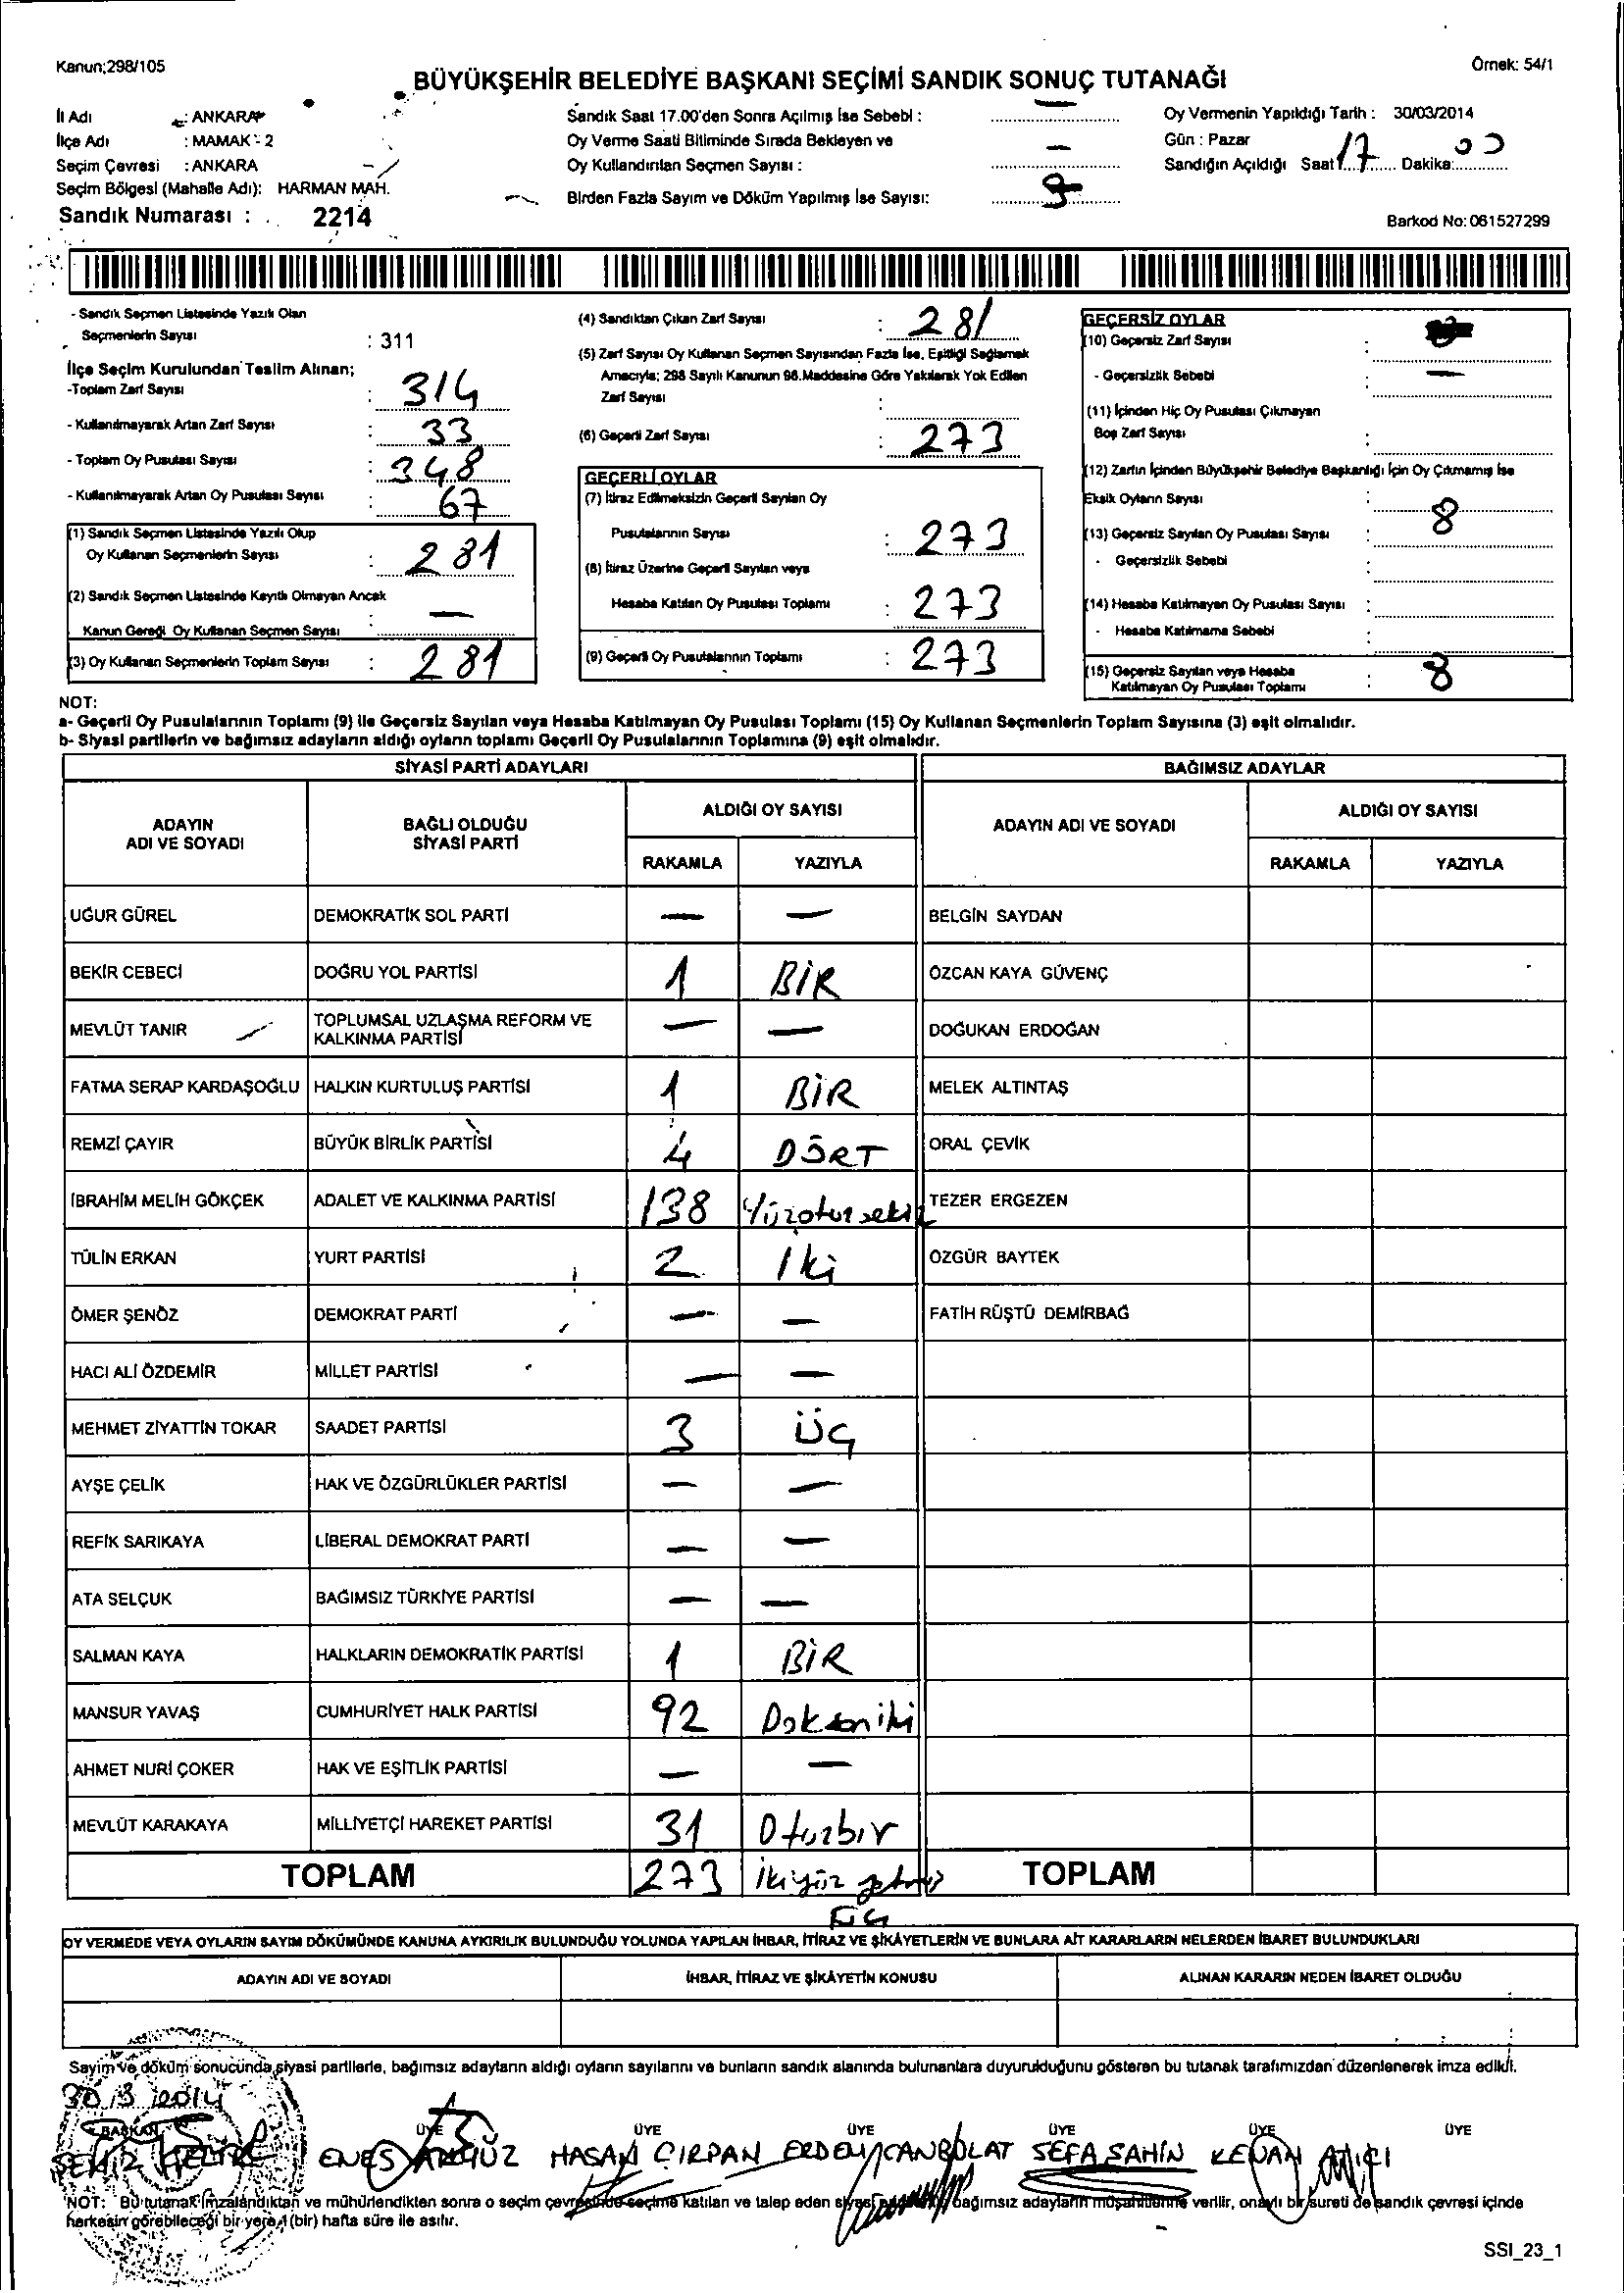 Kanun;298/105
Örnek: 54/1
BÜYÜKŞEHİR BELEDİYE BAŞKANI SEÇİMİ SANDIK SONUÇ TUTANAĞI
İl Adı : ANKARA
İlçe Adı : MAMAK - 2
Seçim Çevresi : ANKARA
Seçim Bölgesi (Mahalle Adı): HARMAN MAH.
Sandık Numarası : 2214
Sandık Saat 17.00'den Sonra Açılmış İse Sebebi : —
Oy Verme Saati Bitiminde Sırada Bekleyen ve
Oy Kullandırılan Seçmen Sayısı : —
Birden Fazla Sayım ve Döküm Yapılmış İse Sayısı:
Oy Vermenin Yapıldığı Tarih : 30/03/2014
Gün : Pazar
Sandığın Açıldığı Saat 17 Dakika: 00
Barkod No: 061527299
- Sandık Seçmen Listesinde Yazılı Olan
Seçmenlerin Sayısı : 311
İlçe Seçim Kurulundan Teslim Alınan;
-Toplam Zarf Sayısı : 314
- Kullanılmayarak Artan Zarf Sayısı : 33
- Toplam Oy Pusulası Sayısı : 348
- Kullanılmayarak Artan Oy Pusulası Sayısı : 67
(1) Sandık Seçmen Listesinde Yazılı Olup
Oy Kullanan Seçmenlerin Sayısı : 281
(2) Sandık Seçmen Listesinde Kayıtlı Olmayan Ancak
Kanun Gereği Oy Kullanan Seçmen Sayısı : —
(3) Oy Kullanan Seçmenlerin Toplam Sayısı : 281
(4) Sandıktan Çıkan Zarf Sayısı : 281
(5) Zarf Sayısı Oy Kullanan Seçmen Sayısından Fazla İse, Eşitliği Sağlamak
Amacıyla; 298 Sayılı Kanunun 98.Maddesine Göre Yakılarak Yok Edilen
Zarf Sayısı :
(6) Geçerli Zarf Sayısı : 273
GEÇERLİ OYLAR
(7) İtiraz Edilmeksizin Geçerli Sayılan Oy
Pusulalarının Sayısı : 273
(8) İtiraz Üzerine Geçerli Sayılan veya
Hesaba Katılan Oy Pusulası Toplamı : 273
(9) Geçerli Oy Pusulalarının Toplamı : 273
GEÇERSİZ OYLAR
(10) Geçersiz Zarf Sayısı :
- Geçersizlik Sebebi : —
(11) İçinden Hiç Oy Pusulası Çıkmayan
Boş Zarf Sayısı :
(12) Zarfın İçinden Büyükşehir Belediye Başkanlığı İçin Oy Çıkmamış İse
Eksik Oyların Sayısı : 8
(13) Geçersiz Sayılan Oy Pusulası Sayısı :
- Geçersizlik Sebebi :
(14) Hesaba Katılmayan Oy Pusulası Sayısı :
- Hesaba Katılmama Sebebi :
(15) Geçersiz Sayılan veya Hesaba
Katılmayan Oy Pusulası Toplamı : 8
NOT:
a- Geçerli Oy Pusulalarının Toplamı (9) ile Geçersiz Sayılan veya Hesaba Katılmayan Oy Pusulası Toplamı (15) Oy Kullanan Seçmenlerin Toplam Sayısına (3) eşit olmalıdır.
b- Siyasi partilerin ve bağımsız adayların aldığı oyların toplamı Geçerli Oy Pusulalarının Toplamına (9) eşit olmalıdır.
SİYASİ PARTİ ADAYLARI BAĞIMSIZ ADAYLAR
ADAYIN ADI VE SOYADI BAĞLI OLDUĞU SİYASİ PARTİ ALDIĞI OY SAYISI ADAYIN ADI VE SOYADI ALDIĞI OY SAYISI
RAKAMLA YAZIYLA RAKAMLA YAZIYLA
UĞUR GÜREL DEMOKRATİK SOL PARTİ — — BELGİN SAYDAN
BEKİR CEBECİ DOĞRU YOL PARTİSİ 1 BİR ÖZCAN KAYA GÜVENÇ
MEVLÜT TANIR TOPLUMSAL UZLAŞMA REFORM VE KALKINMA PARTİSİ — — DOĞUKAN ERDOĞAN
FATMA SERAP KARDAŞOĞLU HALKIN KURTULUŞ PARTİSİ 1 BİR MELEK ALTINTAŞ
REMZİ ÇAYIR BÜYÜK BİRLİK PARTİSİ 4 DÖRT ORAL ÇEVİK
İBRAHİM MELİH GÖKÇEK ADALET VE KALKINMA PARTİSİ 138 Yüzotuzsekiz TEZER ERGEZEN
TÜLİN ERKAN YURT PARTİSİ 2 İki ÖZGÜR BAYTEK
ÖMER ŞENÖZ DEMOKRAT PARTİ — — FATİH RÜŞTÜ DEMİRBAĞ
HACI ALİ ÖZDEMİR MİLLET PARTİSİ — —
MEHMET ZİYATTİN TOKAR SAADET PARTİSİ 3 ÜÇ
AYŞE ÇELİK HAK VE ÖZGÜRLÜKLER PARTİSİ — —
REFİK SARIKAYA LİBERAL DEMOKRAT PARTİ — —
ATA SELÇUK BAĞIMSIZ TÜRKİYE PARTİSİ — —
SALMAN KAYA HALKLARIN DEMOKRATİK PARTİSİ 1 BİR
MANSUR YAVAŞ CUMHURİYET HALK PARTİSİ 92 Doksaniki
AHMET NURİ ÇOKER HAK VE EŞİTLİK PARTİSİ — —
MEVLÜT KARAKAYA MİLLİYETÇİ HAREKET PARTİSİ 31 Otuzbir
TOPLAM 273 İkiyüz yetmiş üç TOPLAM
OY VERMEDE VEYA OYLARIN SAYIM DÖKÜMÜNDE KANUNA AYKIRILIK BULUNDUĞU YOLUNDA YAPILAN İHBAR, İTİRAZ VE ŞİKÂYETLERİN VE BUNLARA AİT KARARLARIN NELERDEN İBARET BULUNDUKLARI
ADAYIN ADI VE SOYADI İHBAR, İTİRAZ VE ŞİKÂYETİN KONUSU ALINAN KARARIN NEDEN İBARET OLDUĞU
Sayım ve döküm sonucunda siyasi partilerle, bağımsız adayların aldığı oyların sayılarını ve bunların sandık alanında bulunanlara duyurulduğunu gösteren bu tutanak tarafımızdan düzenlenerek imza edildi.
30/3/2014
BAŞKAN ÜYE ÜYE ÜYE ÜYE ÜYE ÜYE
ENES HASAN ÇIRPAN ERDEM CANBOLAT SEFA ŞAHİN KENAN
NOT: Bu tutanak imzalandıktan ve mühürlendikten sonra o seçim çevresinde seçime katılan ve talep eden siyasi bağımsız adayların müşahitlerine verilir, onaylı bir sureti de sandık çevresi içinde
herkesin görebileceği bir yere 1 (bir) hafta süre ile asılır.
SSI_23_1